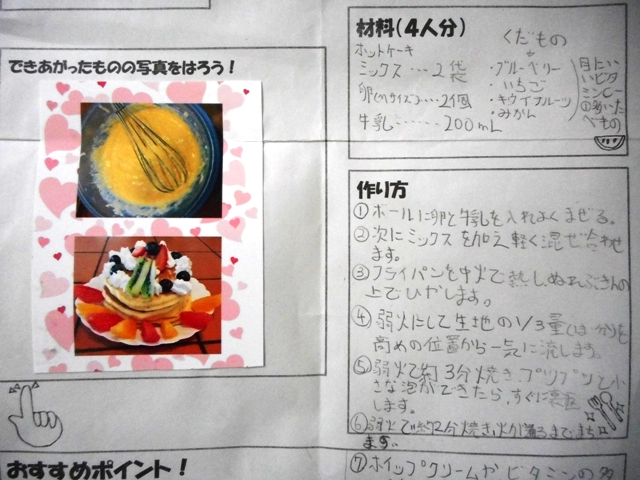 できあがったものの写真をはろう！
材料（4人分）
ホットケーキ
ミックス…2袋
卵(Mサイズ)…2個
牛乳……200mL
くだもの
・ブルーベリー
・いちご
・キウイフルーツ
・みかん
目にいい
ビタ
ミン
べもの
作り方
①ボールに卵と牛乳を入れよくまぜる。
②次にミックスを加え軽く混ぜ合せ
ます。
③フライパンを中火で熱し、ぬれぶきんの
上でひやします。
④弱火にして生地の1/3量(1まい分)を
高めの位置から一気に流します。
⑤弱火で約3分焼きプツプツと小
さな泡ができたら、すぐに裏返
します。
⑥弱火で約2分焼き火が通るまでまち
ます。
おすすめポイント！
⑦ホイップクリームやビタミンの多